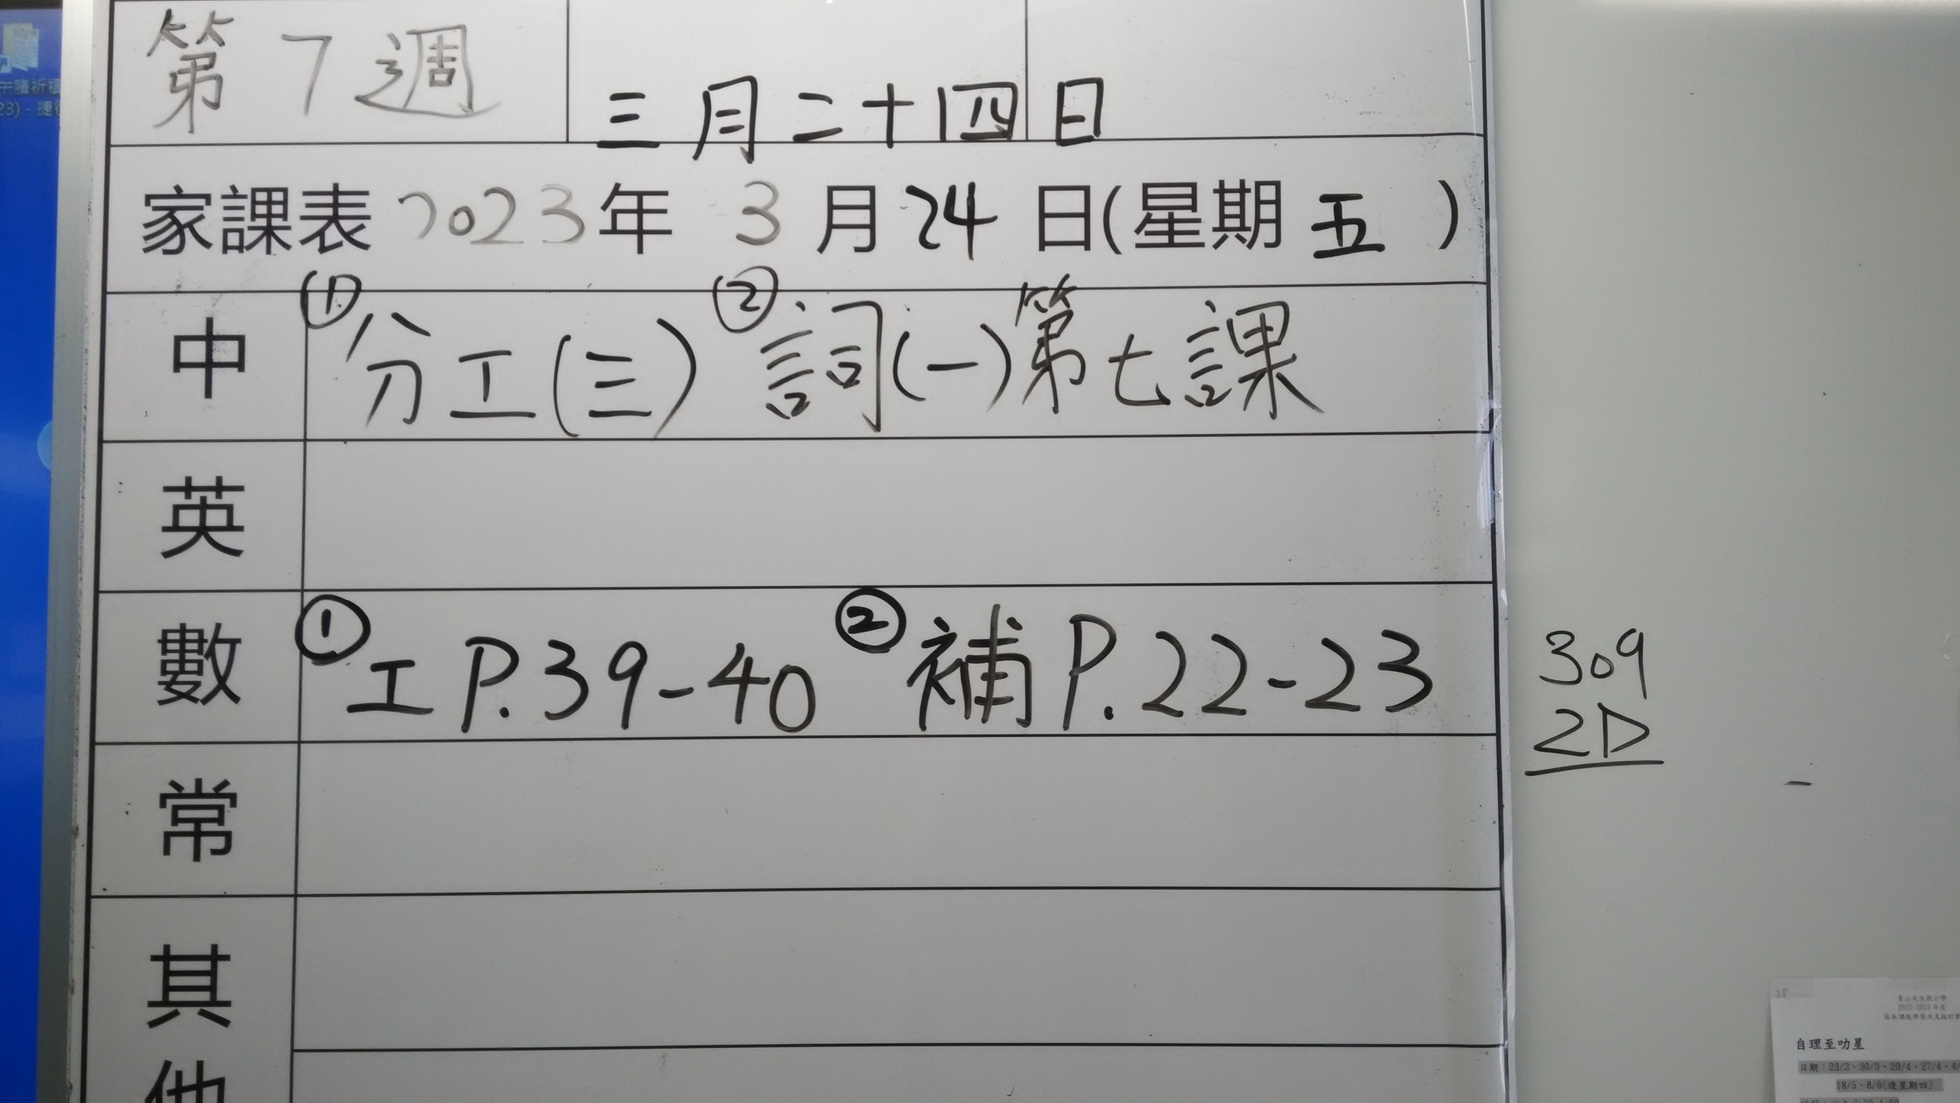 第7週
三月二十四日
家課表 2023年 3月24日(星期五)
中 ①分工(三) ②詞(一)第七課
英
數 ①工P.39-40 ②補P.22-23
常
其
他
309
2D
自理至叻星
日期：23/3、30/3、20/4、27/4、4/
18/5、8/6(逢星期四)